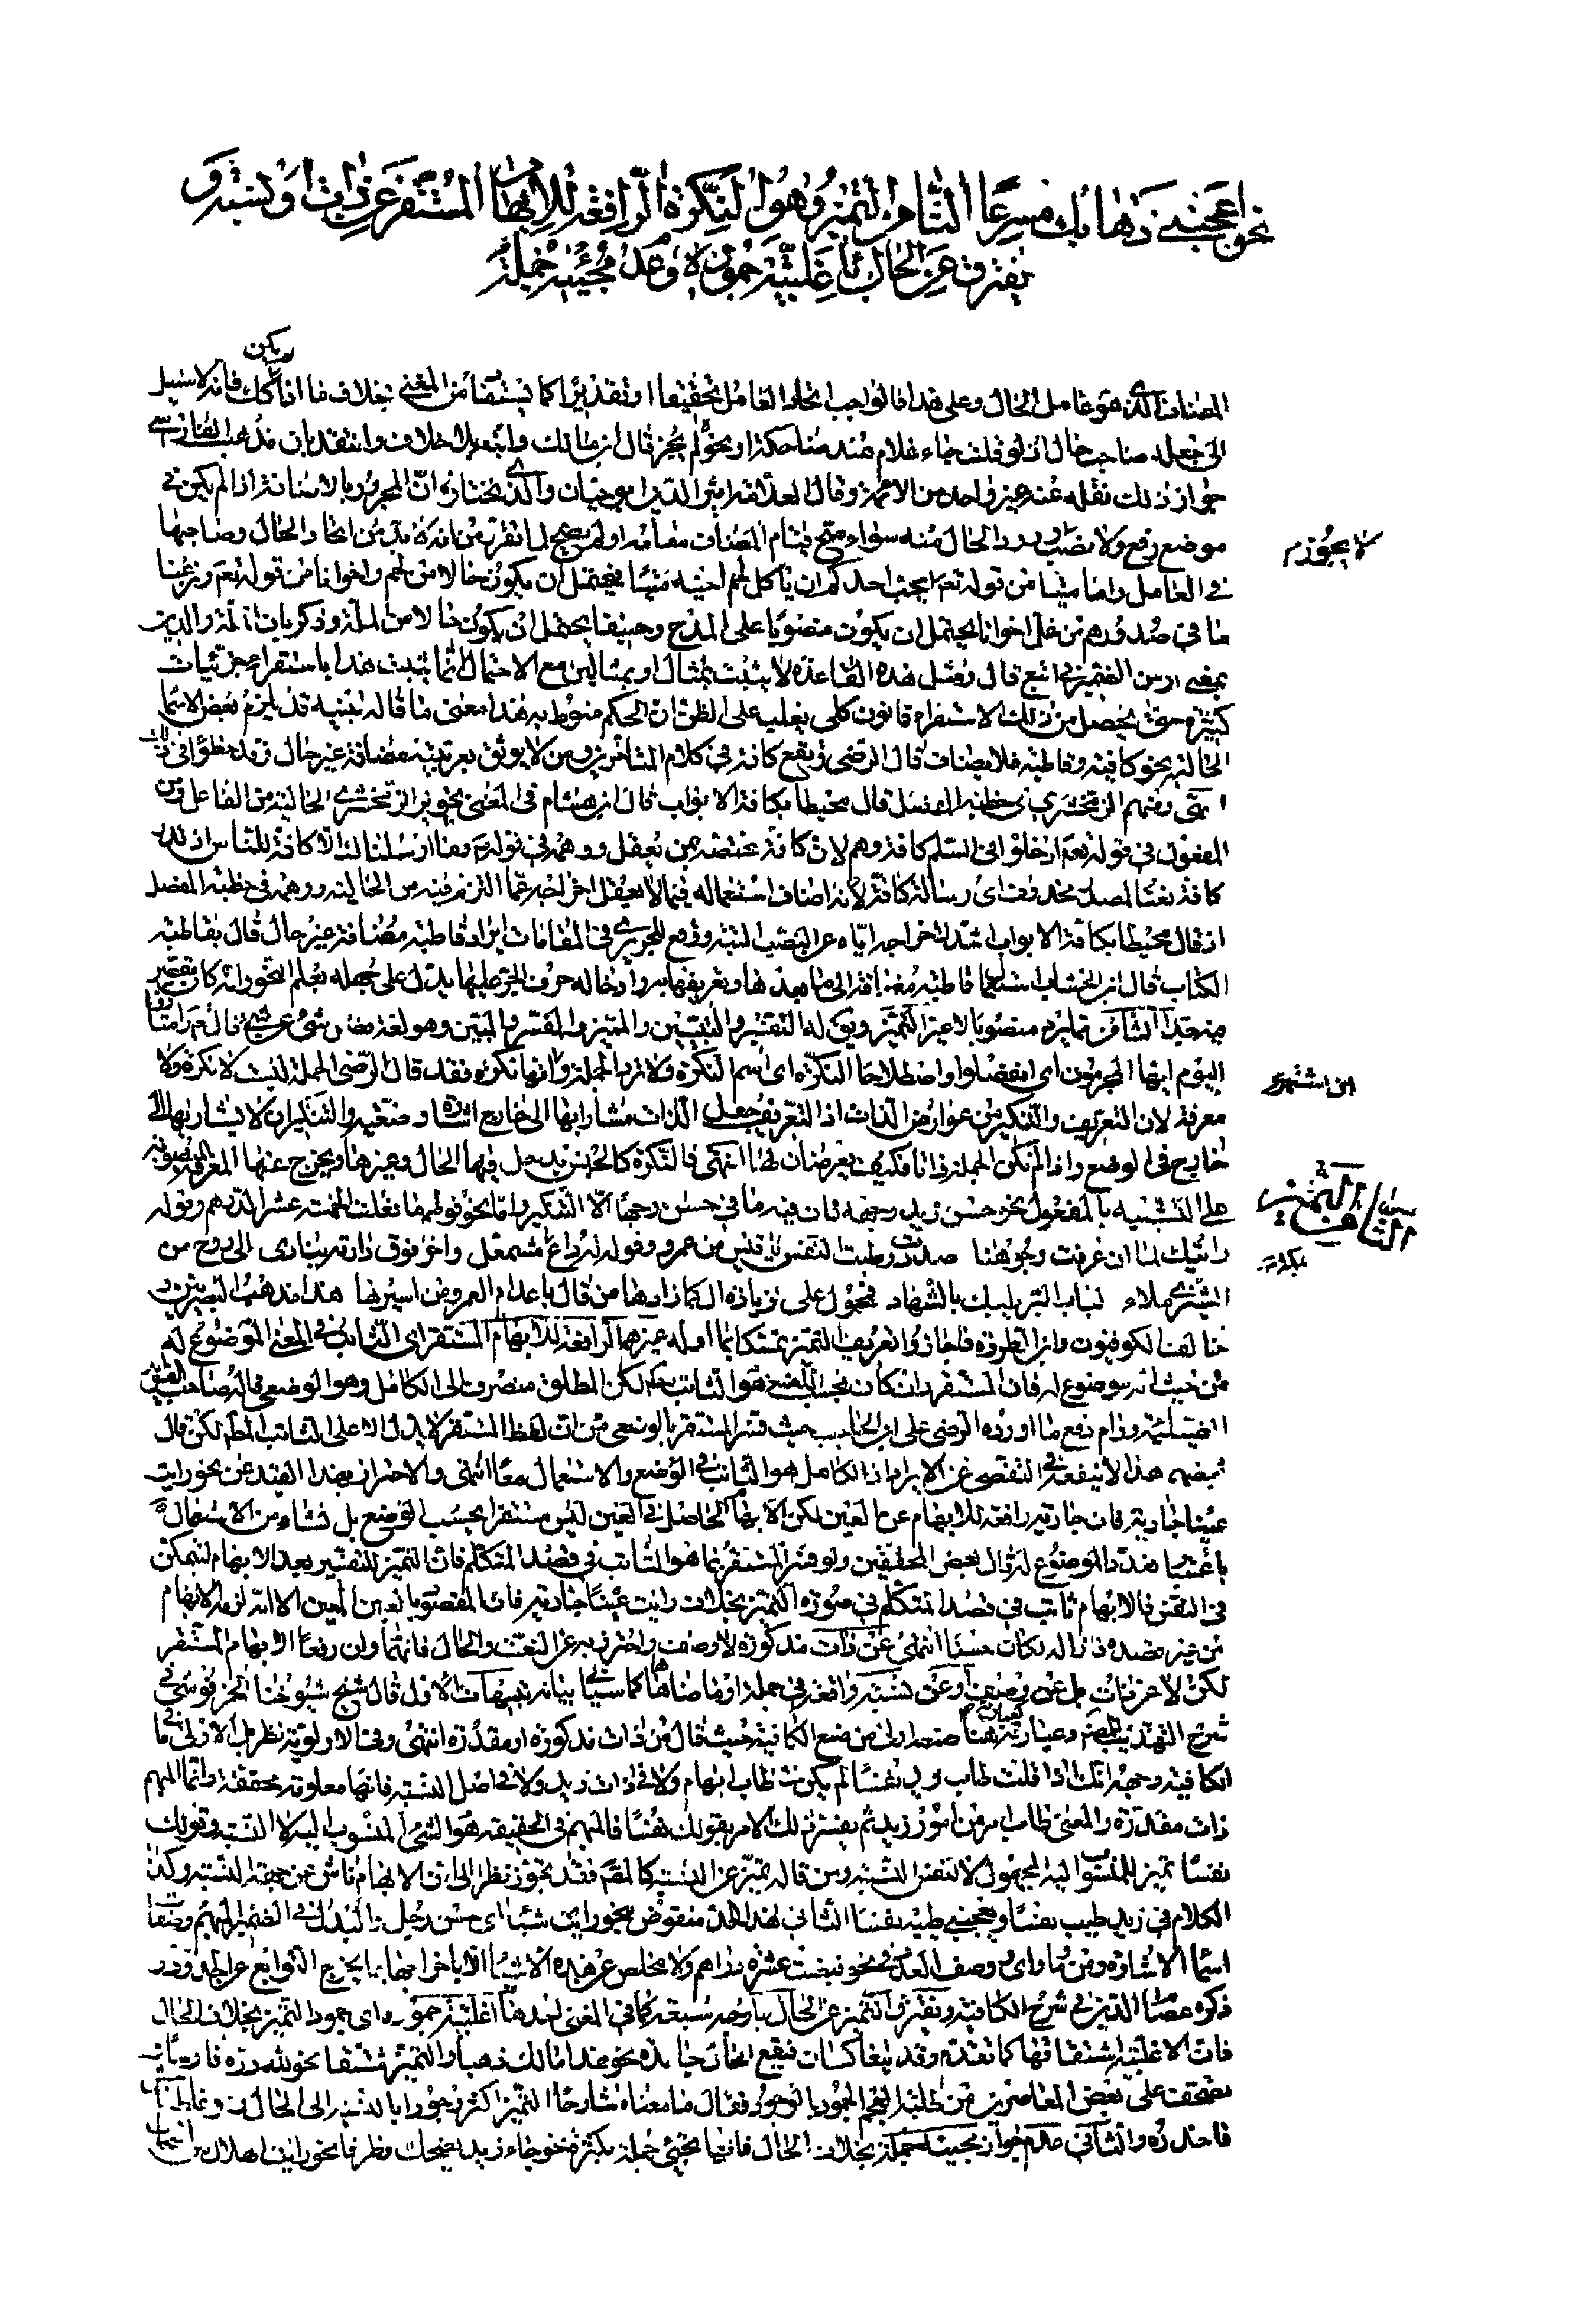 نحو اعجبني ذهابك مسرعا الثامن التميز وهو النكرة الرافعة للابهام المستقر عن ذات او نسبة و
يفترق عن الحال باغلبية جموده وعدم مجيئه جملة
يكن
المضاف الذي هو عامل الحال وعلى هذا فالواجب اتحاد العامل تحقيقا او تقديرا كما يستفاد من المغني بخلاف ما اذا لم يكن كك فانه لا سبيل
الى جعله صاحب حال اذ لو قلت جاء غلام هند ضاحكة او نحوه لم يجز قال ابن مالك وابنه بلا خلاف وانتقد بان مذهب الفارسي
جواز ذلك نقله عنه غير واحد من الائمة وقال العلامة اثير الدين ابو حيان والذي نختاره ان المجرور بالاضافة اذا لم يكن في
موضع رفع ولا نصب لا يجوز ورود الحال منه سواء صح قيام المضاف مقامه او لم يصح لما تقرر من انه لا بد من اتحاد الحال وصاحبها
لا يجوز م
في العامل واما ميتا من قوله تعم ايحب احدكم ان ياكل لحم اخيه ميتا فيحتمل ان يكون حالا من لحم واخوانا من قوله تعم ونزعنا
ما في صدورهم من غل اخوانا يحتمل ان يكون منصوبا على المدح وحنيفا يحتمل ان يكون حالا من الملة وذكر بان الملة والدين
بمعنى او من الضمير في اتبع قال ومثل هذه القاعدة لا يثبت بمثال او بمثالين مع الاحتمال انما يثبت هذا باستقراء جزئيات
كثيرة حتى يحصل من ذلك الاستقراء قانون كلي يغلب على الظن ان الحكم منوط به هذا معنى ما قاله تنبيه قد يلزم بعض الاسماء
الحالية نحو كافة وقاطبة فلا يضاف قال الرضى وتقع كافة في كلام المتاخرين ومن لا يوثق بعربيته مضافة غير حال وقد خطئوا في ذلك
انتهى ومنهم الزمخشري في خطبة المفصل قال محيطا بكافة الابواب قال ابن هشام في المغني تجويز الزمخشري الحالية من الفاعل ومن
المفعول في قوله تعم ادخلوا في السلم كافة وهم لان كافة مختصة بمن يعقل ووهمه في قوله تعم وما ارسلناك الا كافة للناس اذ قدر
كافة نعتا لمصدر محذوف اي رسالة كافة لانه اضاف استعماله فيما لا يعقل اخراجه عما التزم فيه من الحالية ووهمه في خطبة المفصل
اذ قال محيطا بكافة الابواب اشد لاخراجه اياه عن النصب البتة ووقع للحريري في المقامات ايراد قاطبة مضافة غير حال قال بقاطبة
الكتاب قال ابن الخشاب استعمل قاطبة مضافة الى ما بعدها وتعريفها به وادخاله حرف الجر عليها يدل على جهله بعلم النحو وانه كان مقصرا
فيه جدا الثامن مما يرد منصوبا لا غير التميز ويق له التفسير والتبيين والمميز والمفسر والمبين وهو لغة فصل شئ عن شئ قال تعم وامتازوا
اليوم ايها المجرمون اي انفصلوا واصطلاحا النكرة اي اسم النكرة ولا ترد الجملة وانها نكرة فقد قال الرضى الجملة ليست لا نكرة ولا
معرفة لان التعريف والتنكير من عوارض الذات اذ التعريف جعل الذات مشارا بها الى خارج اشارة وضعية والتنكير ان لا يشار بها الى
خارج في الوضع واذا لم تكن الجملة ذاتا فكيف يعرضان لها انتهى فالنكرة كالجنس يدخل فيها الحال وغيرها ويخرج عنها المعرفة المنصوبة
على التشبيه بالمفعول نحو حسن زيد وجهه فان فيه ما في حسن وجها الا التنكير واما نحو قولهم ما فعلت الخمسة عشر الدرهم وقوله
رايتك لما ان عرفت وجوهنا صددت وطبت النفس يا قيس من عمرو وقوله له داع بمكة مشمعل واخر فوق دارته ينادي الى ردح من
الشيزى ملاء لباب البر يلبك بالشهاد فمحمول على زيادة ال كما زادها من قال باعد ام العمرو من اسيرها هذا مذهب البصريين و
خالفنا الكوفيون وابن الطراوة فاجازوا تعريف التميز تمسكا بما امله غيرهما الرافعة للابهام المستقر اي الثابت في المعنى الموضوع له
من حيث انه موضوع له فان المستقر وان كان بحسب اللغة هو الثابت لكن المطلق منصرف الى الكامل وهو الوضعي قاله صاحب
ورام دفع ما اورده الرضى على ابن الحاجب حيث فسر المستقر بالوضعي من ان لفظ المستقر لا يدل الا على الثابت المطلق لكن قال
بعضهم هذا لا ينفعه في التفصي عن الايراد اذ الكامل هو الثابت في الوضع والاستعمال معا انتهى والاحتراز بهذا القيد عن نحو رايت
عينا جارية فان جارية رافعة للابهام عن العين لكن الابهام الحاصل في العين ليس مستقرا بحسب الوضع بل نشاء من الاستعمال
باعتبار تعدد الموضوع له قال بعض المحققين ولو فسر المستقر بما هو الثابت في قصد المتكلم فان التميز للتفسير بعد الابهام ليتمكن
في النفس فالابهام ثابت في قصد المتكلم في صورة التميز بخلاف رايت عينا جارية فان المقصود بالعين المعين الا انه لزمه الابهام
من غير قصده ازاله لكان حسنا انتهى عن ذات مذكورة لا وصف واحترز به عن النعت والحال فانهما وان رفعا الابهام المستقر
لكن لا عن ذات بل عن وصف او عن نسبة واقعة في جملة او ما ضاهاها كما سيأتي بيانه تنبيهات الاول قال شيخ شيوخنا الحرفوشي في
شرح التهذيب للمصنف وعبارته هنا احسن من صنع الكافية حيث قال من ذات مذكورة او مقدرة انتهى وفي الاولوية نظر بل الاولى ما في
الكافية وجهه انك اذا قلت طاب زيد نفسا لم يكن في طاب ابهام ولا في ذات زيد ولا في اصل النسبة فانها معلومة محققة وانما المبهم
ذات مقدرة والمعنى طاب امر من امور زيد ثم يفسر ذلك الامر بقولك نفسا فالمبهم في الحقيقة هو الشئ المنسوب اليه لا النسبة وقولك
نفسا تميز للمنسوب اليه المجهول لا لنفس النسبة ومن قال تميز عن النسبة كالمصنف فقد تجوز نظرا الى ان الابهام ناش من جهة النسبة وكذا
الكلام في زيد طيب نفسا ويعجبني طيبه نفسا الثاني هذا الحد منقوض بنحو رايت شبحا اي حسن رجل والبدل في الضمير المبهم وصفات
اسماء الاشارة ومن وما واي ووصف العدد في نحو قبضت عشرة دراهم ولا مخلص عن هذه الاشياء الا باخراجها بما يخرج التوابع عن الحد وقد
ذكره عصام الدين في شرح الكافية ويفترق التميز عن الحال باوجه سبعة كما في المغني احدها اغلبية جموده اي جمود التميز بخلاف الحال
فان الاغلبية اشتقاقها كما تقدم وقد يتعاكسان فيقع الحال جامدة نحو هذا مالك ذهبا والتميز مشتقا نحو لله دره فارسا
تصحفت على بعض المعاصرين من طلبة العجم الجمود بالوجود فقال ما معناه شارحا التميز اكثر وجودا بالنسبة الى الحال
فاحذره والثاني عدم جواز مجيئه جملة بخلاف الحال فانها تجئ جملة بكثرة نحو جاء زيد يضحك وظرفا نحو رايت الهلال بين السحاب
التميز
الثامن